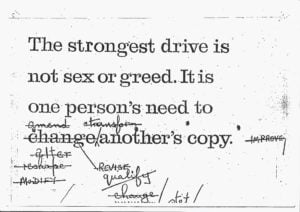 The strongest drive is
not sex or greed. It is
one person's need to
amend transform
change another's copy. IMPROVE
alter
reshape REVISE
MODIFY qualify
change / stet /